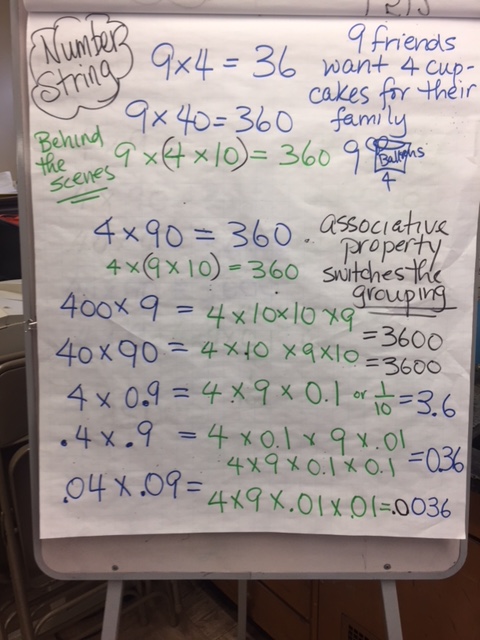 Number
String
9×4 = 36
9 friends
want 4 cup-
cakes for their
family
9×40=360
Behind
the
scenes
9 ×(4 × 10)= 360
9
Ballons
4
4×90 = 360.
4×(9×10) = 360
associative
property
switches the
grouping
400×9 = 4×10×10×9 =3600
40×90 = 4×10 ×9×10 =3600
4 × 0.9 = 4×9×0.1 or 1/10 =3.6
.4×.9 = 4×0.1×9×.01
4×9×0.1×0.1 =0.36
.04×.09=
4×9×.01×.01=.0036